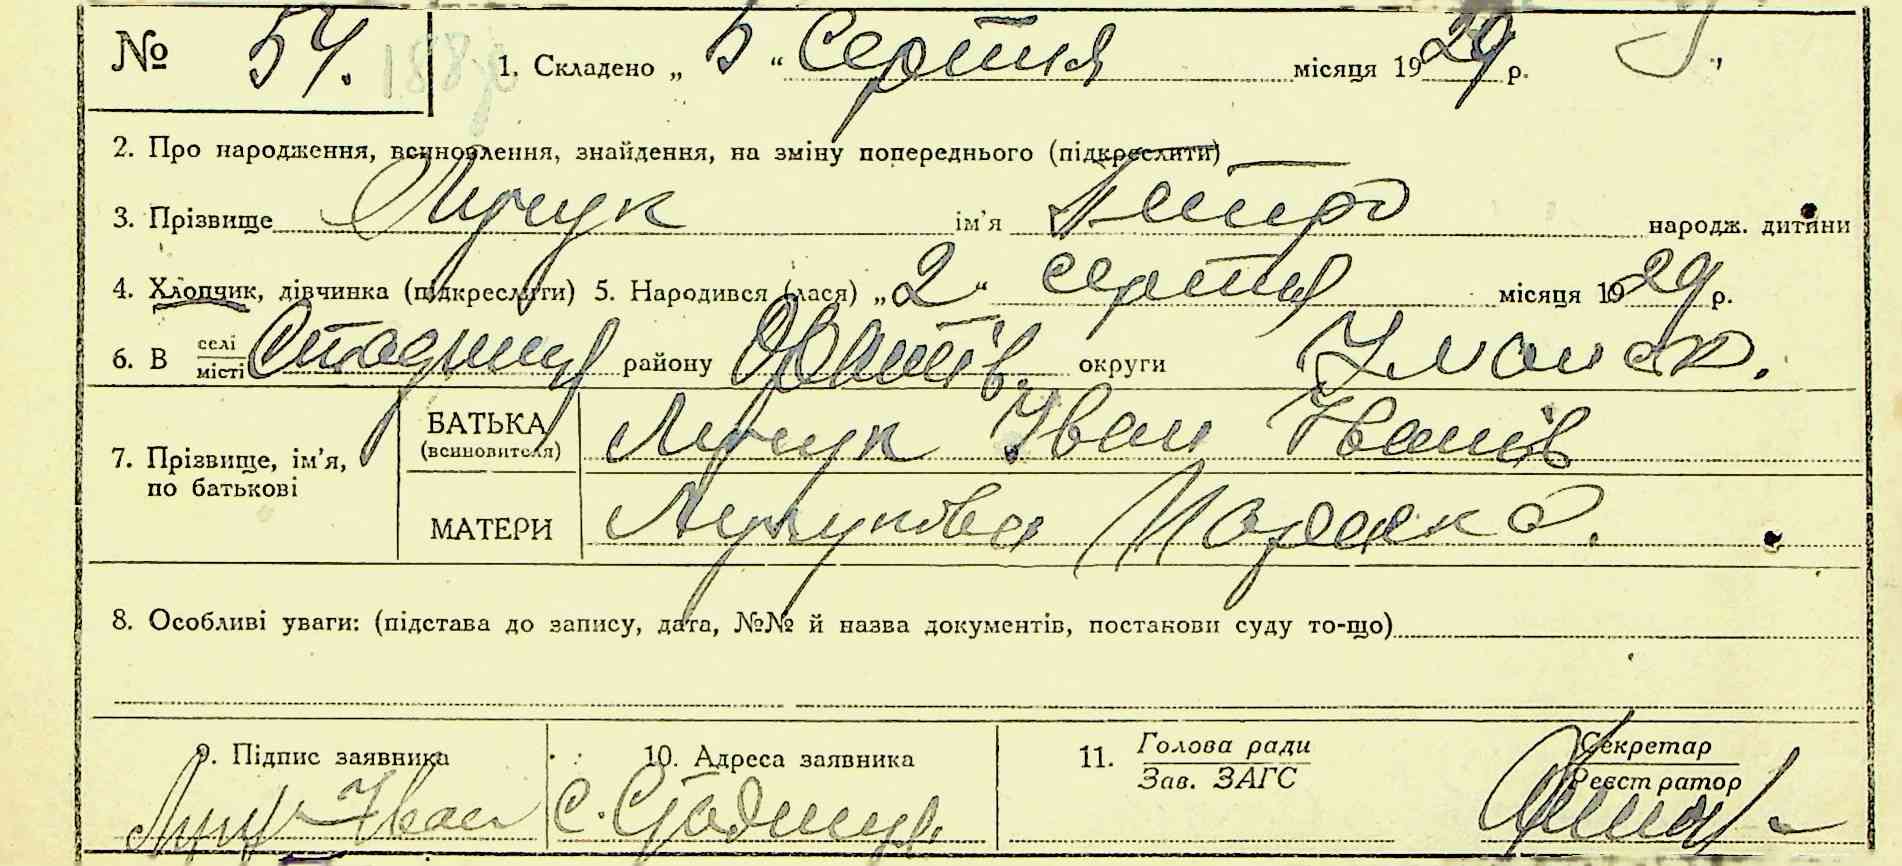 № 54. 1. Складено „ 5 “ Серпня місяця 1929 р.
2. Про народження, всиновлення, знайдення, на зміну попереднього (підкреслити)
3. Прізвище Лучук ім'я Петро народж. дитини
4. Хлопчик, дівчинка (підкреслити) 5. Народився (лася) „ 2 “ серпня місяця 1929 р.
6. В селі місті району округи Уманск.
7. Прізвище, ім'я, по батькові
БАТЬКА (всиновителя) Лучук Іван Іванів
МАТЕРИ Лучукова
8. Особливі уваги: (підстава до запису, дата, №№ й назва документів, постанови суду то-що)
9. Підпис заявника 10. Адреса заявника 11. Голова ради Зав. ЗАГС Секретар Реєстратор
Лучук Іван с.